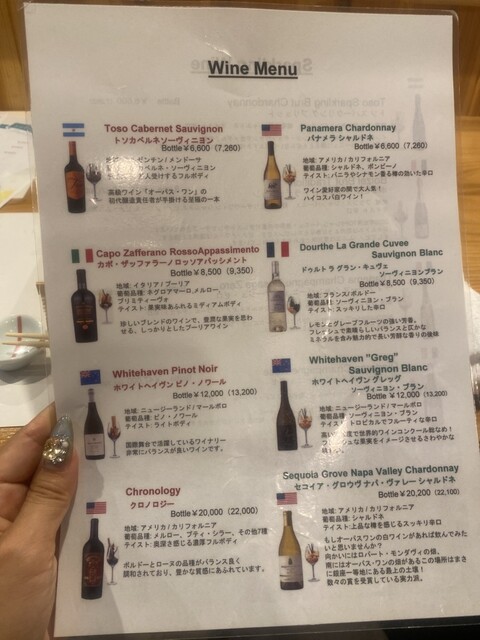 Wine Menu
Toso Cabernet Sauvignon
トソカベルネソーヴィニヨン
Bottle￥6,600 (7,260)
ワンテン/メンドーサ
ベルネ・ソーヴィニヨン
受けするフルボディ
高級ワイン「オーパス・ワン」の
初代醸造責任者が手掛ける至極の一本
Panamera Chardonnay
パナメラ シャルドネ
Bottle￥6,600 (7,260)
地域: アメリカ/カリフォルニア
葡萄品種: シャルドネ、ポンピーノ
テイスト: バニラやシナモン香る樽の効いた辛口
ワイン愛好家の間で大人気!
ハイコスパワイン!
Capo Zafferano RossoAppassimento
カポ・ザッファラーノロッソアパッシメント
Bottle￥8,500 (9,350)
地域: イタリア/プーリア
葡萄品種: ネグロアマーロ,メルロー、
プリミティーヴォ
テイスト: 果実味あふれるミディアムボディ
珍しいブレンドのワインで、豊潤な果実を思わ
せる、しっかりとしたプーリアワイン
Dourthe La Grande Cuvee
Sauvignon Blanc
ドゥルト ラ グラン・キュヴェ
ソーヴィニヨンブラン
Bottle￥8,500 (9,350)
地域: フランス/ボルドー
葡萄品種: ソーヴィニヨン・ブラン
テイスト: スッキリした辛口
レモンとグレープフルーツの強い芳香。
フレッシュで素晴らしいバランスと広がな
ミネラルを含み魅力的で長い芳醇な香りの後味
Whitehaven Pinot Noir
ホワイトヘイヴン ピノ・ノワール
Bottle￥12,000 (13,200)
地域: ニュージーランド/マールボロ
葡萄品種: ピノ・ノワール
テイスト: ライトボディ
国際舞台で活躍しているワイナリー
非常にバランスが良いワインです。
Whitehaven "Greg"
Sauvignon Blanc
ホワイトヘイヴン グレッグ
ソーヴィニヨン・ブラン
Bottle￥12,000(13,200)
地域: ニュージーランド/マールボロ
葡萄品種: ソーヴィニヨン・ブラン
テイスト: トロピカルでフルーティな辛口
度で世界的ワインコンクール総なめ!
な果実をイメージさせるさわやかな
Chronology
クロノロジー
Bottle￥20,000 (22,000)
地域: アメリカ/カリフォルニア
葡萄品種: メルロー、プティ・シラー、その他7種
テイスト: 奥深さ感じる濃厚フルボディ
ボルドーとローヌの品種がバランス良く
調和されており、豊かな質感にあふれています。
Sequoia Grove Napa Valley Chardonnay
セコイア・グロウヴ ナパ・ヴァレー シャルドネ
Bottle￥20,200 (22,100)
地域: アメリカ/カリフォルニア
葡萄品種: シャルドネ
テイスト:上品な樽を感じるスッキリ辛口
もしオーパスワンの白ワインがあれば飲んでみた
いと思いませんか?
向かいにはロバート・モンダヴィの畑、
南にはオーパス・ワンの畑があるこの場所はまさ
に銀座一等地にある最上の土壌!
数々の賞を受賞している実力派。